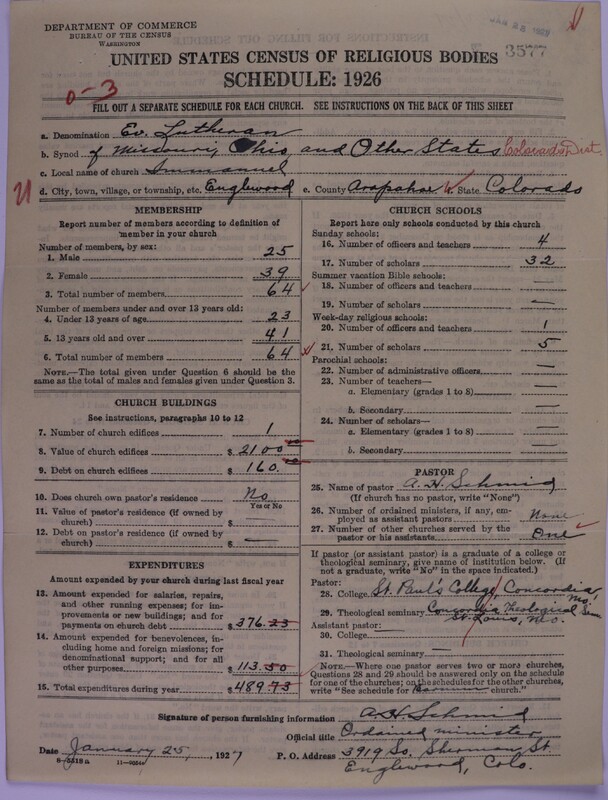 DEPARTMENT OF COMMERCE
BUREAU OF THE CENSUS
WASHINGTON
3577
UNITED STATES CENSUS OF RELIGIOUS BODIES
SCHEDULE: 1926
0-3
FILL OUT A SEPARATE SCHEDULE FOR EACH CHURCH. SEE INSTRUCTIONS ON THE BACK OF THIS SHEET
a. Denomination Ev. Lutheran
b. Synod of Missouri, Ohio, and Other States Colorado Dist.
c. Local name of church Immanuel
d. City, town, village, or township, etc. Englewood e. County Arapahoe f. State Colorado
MEMBERSHIP
Report number of members according to definition of member in your church
Number of members, by sex:
1. Male 25
2. Female 39
3. Total number of members 64
Number of members under and over 13 years old:
4. Under 13 years of age 23
5. 13 years old and over 41
6. Total number of members 64
NOTE.—The total given under Question 6 should be the
same as the total of males and females given under Question 3.
CHURCH BUILDINGS
See instructions, paragraphs 10 to 12
7. Number of church edifices 1
8. Value of church edifices $ 2100
9. Debt on church edifices $ 160.
10. Does church own pastor's residence No
Yes or No
11. Value of pastor's residence (if owned by
church) $ —
12. Debt on pastor's residence (if owned by
church) $ —
EXPENDITURES
Amount expended by your church during last fiscal year
13. Amount expended for salaries, repairs,
and other running expenses; for im-
provements or new buildings; and for
payments on church debt $ 376.23
14. Amount expended for benevolences,
including home and foreign missions; for
denominational support; and for all
other purposes $ 113.50
15. Total expenditures during year $ 489.73
CHURCH SCHOOLS
Report here only schools conducted by this church
Sunday schools:
16. Number of officers and teachers 4
17. Number of scholars 32
Summer vacation Bible schools:
18. Number of officers and teachers —
19. Number of scholars —
Week-day religious schools:
20. Number of officers and teachers 1
21. Number of scholars 5
Parochial schools:
22. Number of administrative officers —
23. Number of teachers—
a. Elementary (grades 1 to 8) —
b. Secondary —
24. Number of scholars—
a. Elementary (grades 1 to 8) —
b. Secondary —
PASTOR
25. Name of pastor A. H. Schmid
(If church has no pastor, write "None")
26. Number of ordained ministers, if any, em-
ployed as assistant pastors None
27. Number of other churches served by the
pastor or his assistants One
If pastor (or assistant pastor) is a graduate of a college or
theological seminary, give name of institution below. (If
not a graduate, write "No" in the space indicated.)
Pastor:
28. College St. Paul's College, Concordia, Mo.
29. Theological seminary Concordia Theological Sem.
St. Louis, Mo.
Assistant pastor:
30. College —
31. Theological seminary —
NOTE.—Where one pastor serves two or more churches,
Questions 28 and 29 should be answered only on the schedule
for one of the churches; on the schedules for the other churches,
write "See schedule for church."
Signature of person furnishing information A. H. Schmid
Official title Ordained minister
Date January 25, 1927
P. O. Address 3919 So. Sherman St.
Englewood, Colo.
8—5318a 11—9054a